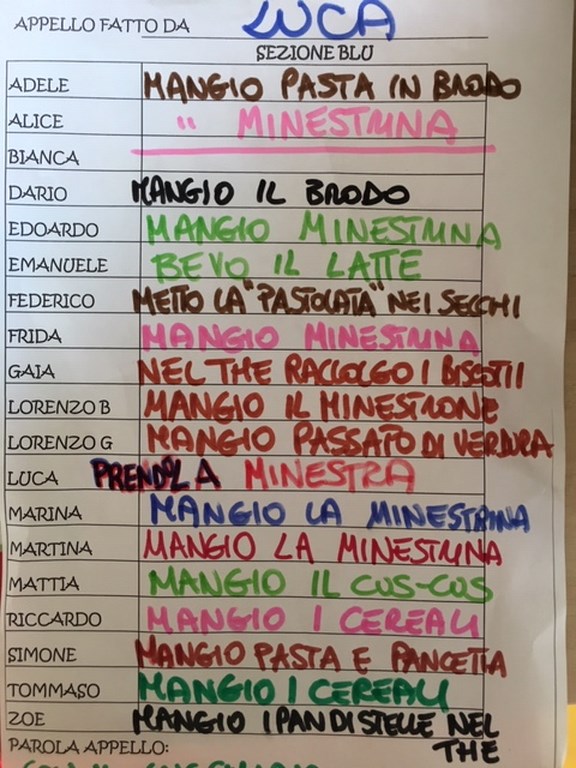 APPELLO FATTO DA LUCA
SEZIONE BLU
ADELE MANGIO PASTA IN BRODO
ALICE " MINESTRINA
BIANCA
DARIO MANGIO IL BRODO
EDOARDO MANGIO MINESTRINA
EMANUELE BEVO IL LATTE
FEDERICO METTO LA "PASTOLATA" NEI SECCHI
FRIDA MANGIO MINESTRINA
GAIA NEL THE RACCOLGO I BISCOTTI
LORENZO B MANGIO IL MINESTRONE
LORENZO G MANGIO PASSATO DI VERDURA
LUCA PRENDO LA MINESTRA
MARINA MANGIO LA MINESTRINA
MARTINA MANGIO LA MINESTRINA
MATTIA MANGIO IL CUS-CUS
RICCARDO MANGIO I CEREALI
SIMONE MANGIO PASTA E PANCETTA
TOMMASO MANGIO I CEREALI
ZOE MANGIO I PAN DI STELLE NEL
THE
PAROLA APPELLO: